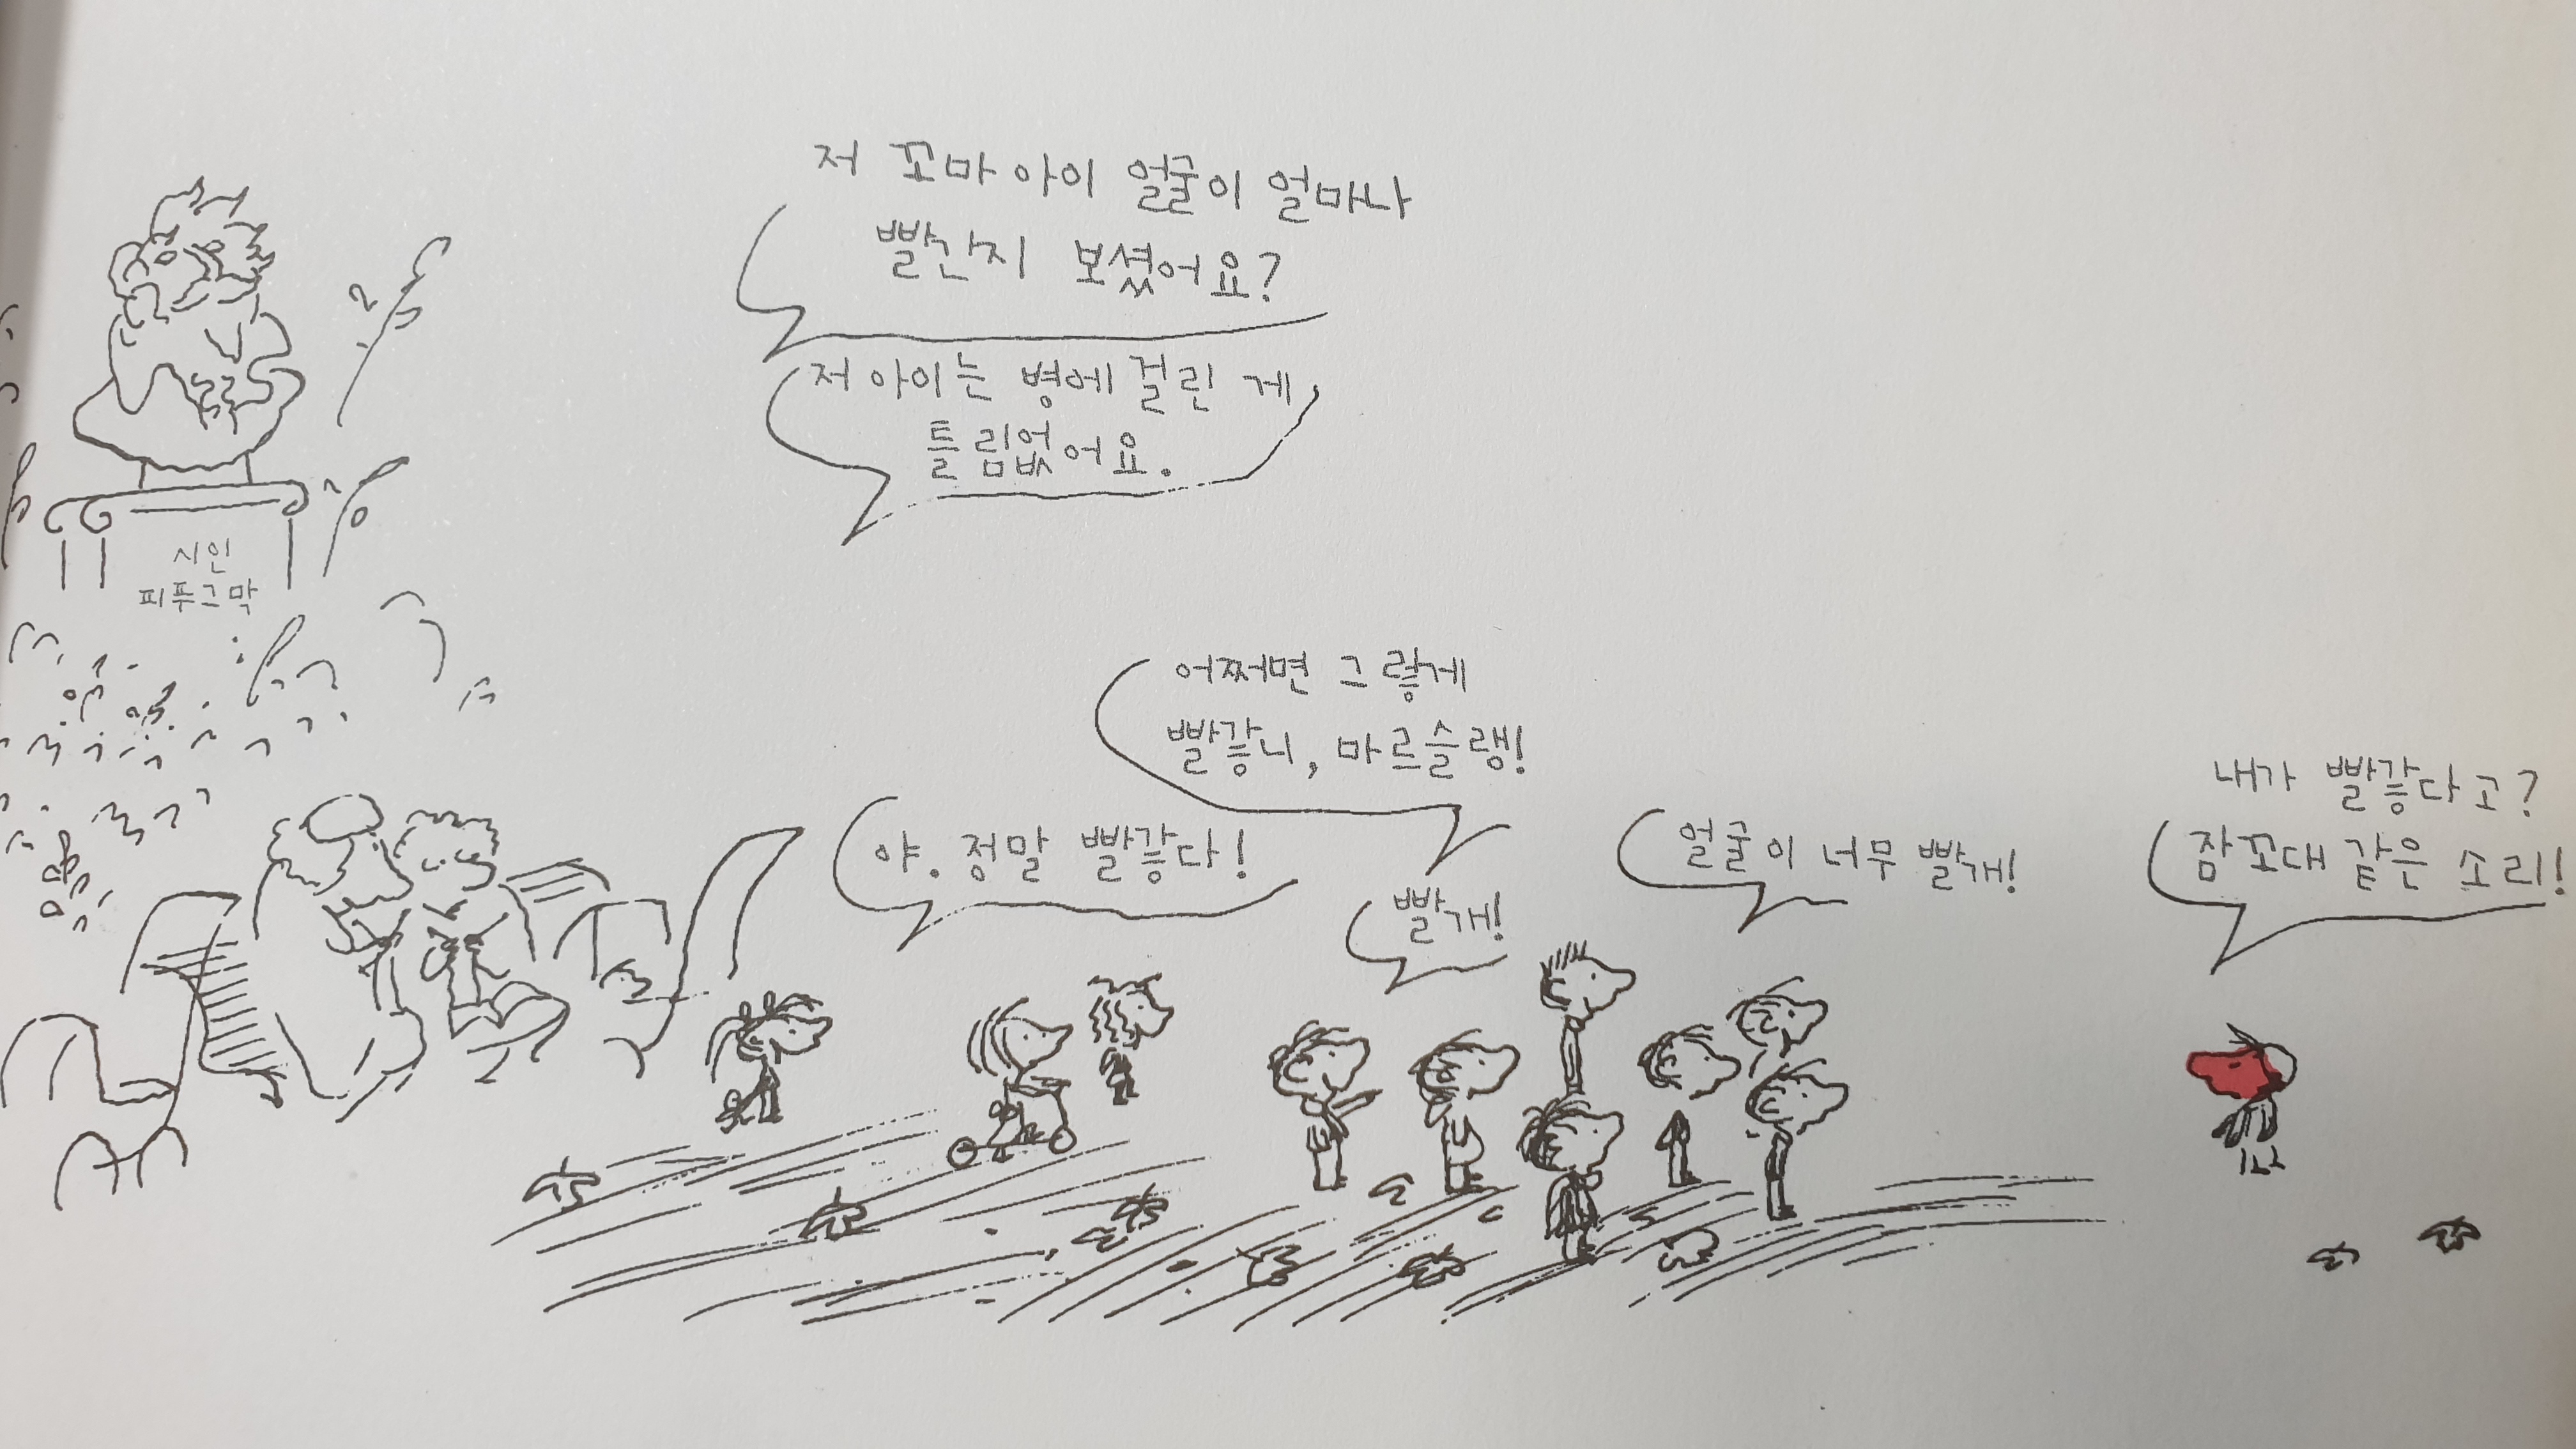 저 꼬마 아이 얼굴이 얼마나
빨간지 보셨어요?
저 아이는 병에 걸린 게
틀림없어요.
시인
피푸그막
어쩌면 그렇게
빨갛니, 마르슬랭!
야. 정말 빨갛다!
빨개!
얼굴이 너무 빨개!
내가 빨갛다고?
잠꼬대 같은 소리!